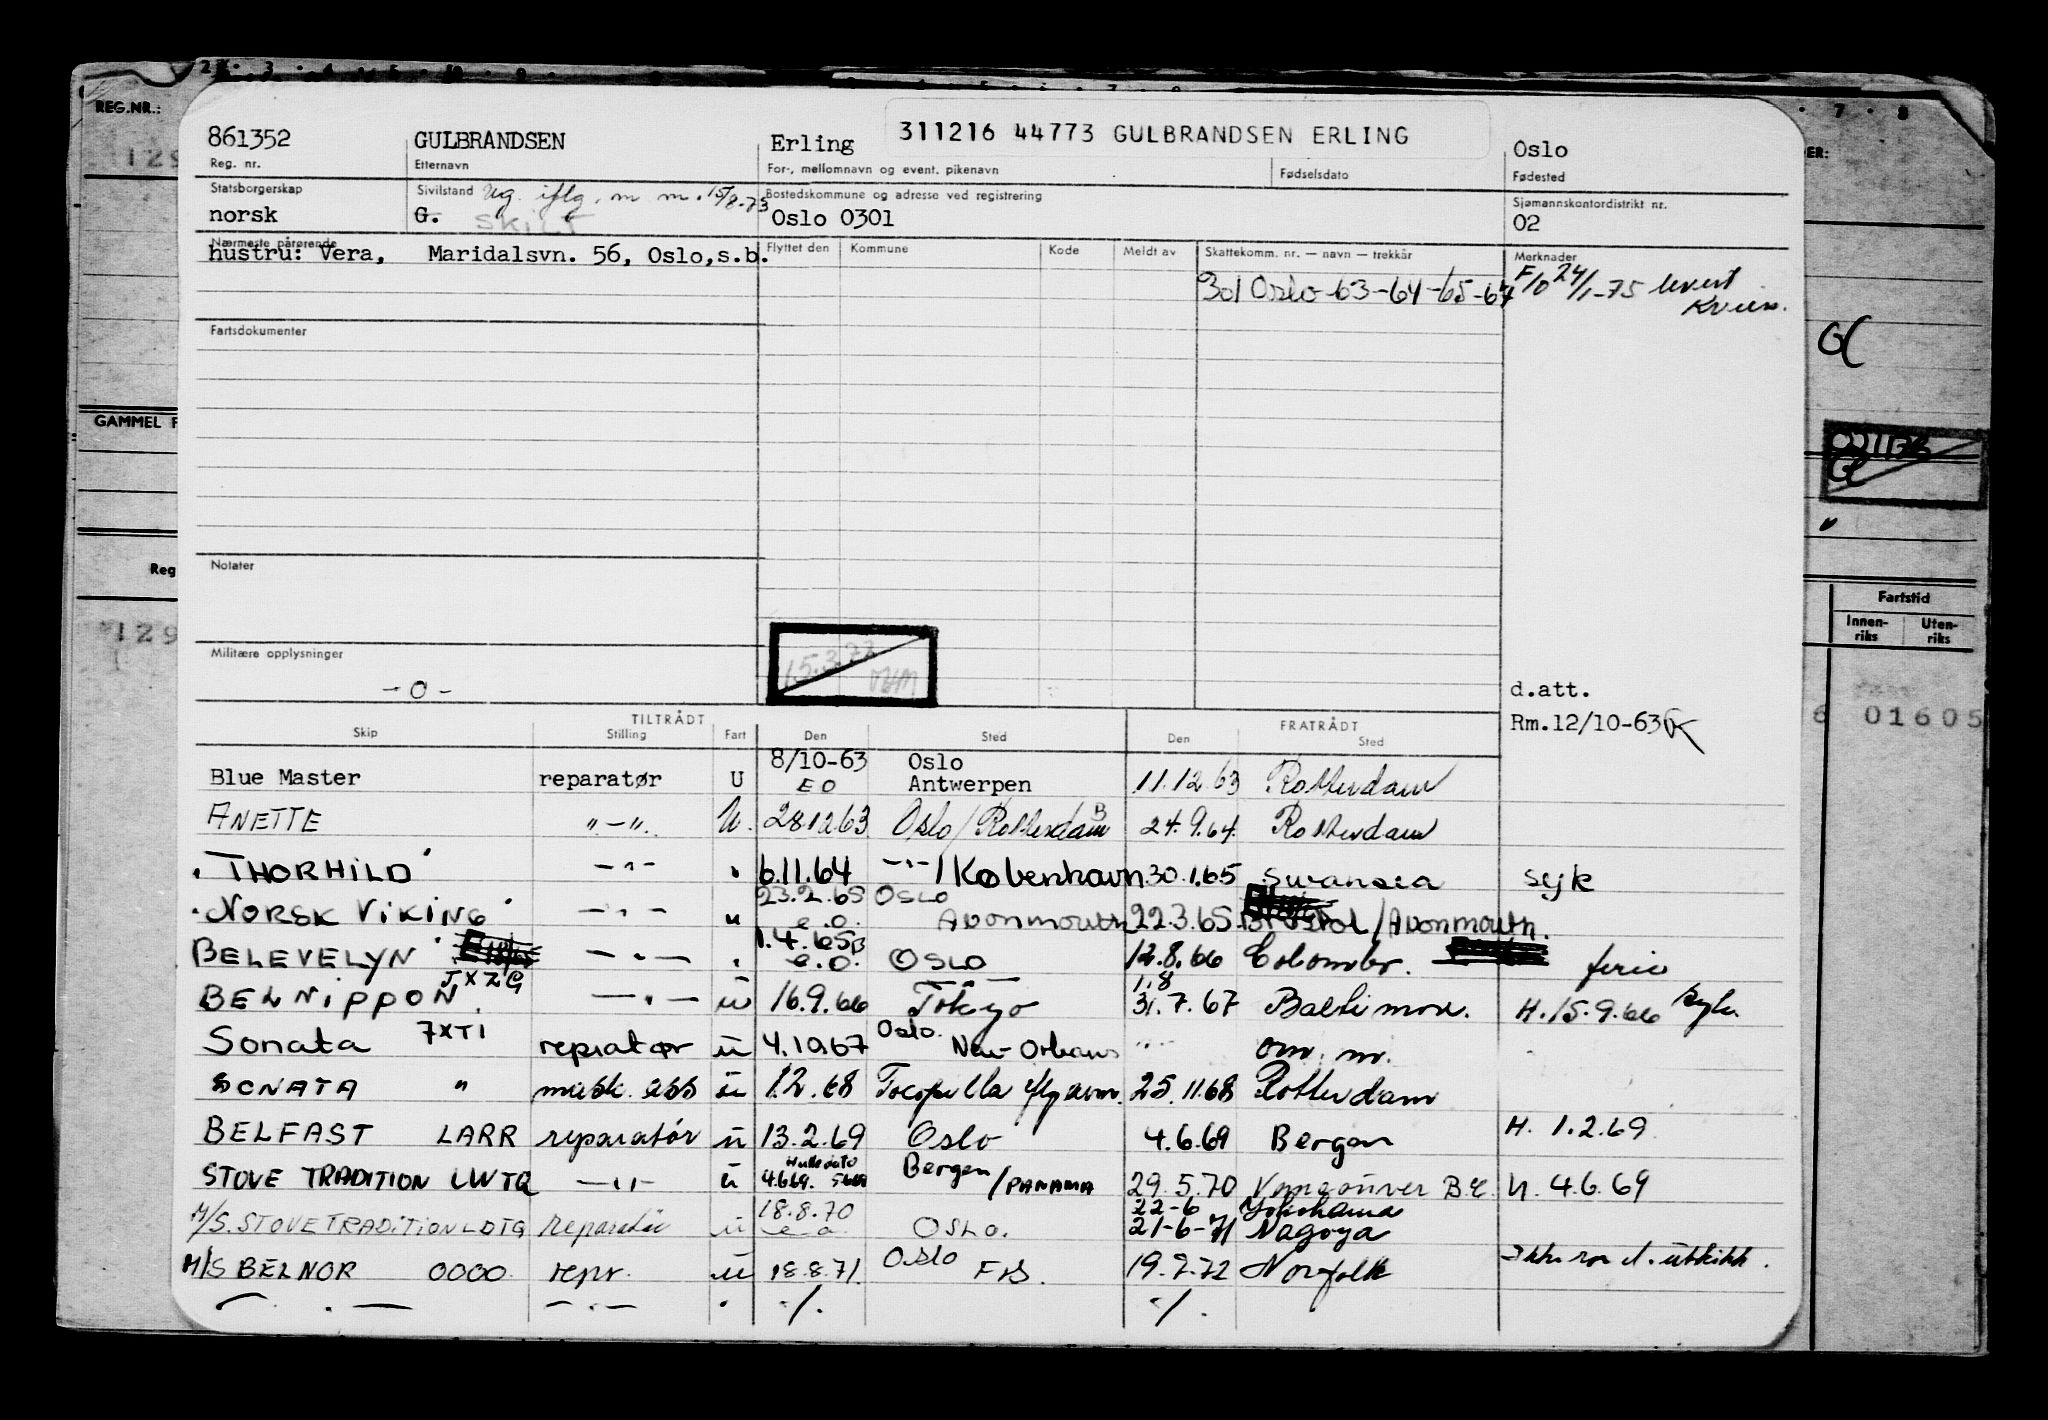 REG.NR.:
861352 GULBRANDSEN Erling 311216 44773 GULBRANDSEN ERLING Oslo
Reg. nr. Etternavn For-, mellomnavn og event. pikenavn Fødselsdato Fødested
Statsborgerskap Sivilstand Ug. iflg. m m. 15/8-73 Bostedskommune og adresse ved registrering Sjømannskontordistrikt nr.
norsk G. SKILT Oslo 0301 02
Nærmeste pårørende Flyttet den Kommune Kode Meldt av Skattekomm. nr. — navn — trekkår Merknader
hustru: Vera, Maridalsvn. 56, Oslo,s.b.
301 Oslo-63-64-65-67 F/O 24/1-75 levert
Fartsdokumenter
GAMMEL F
Notater
Reg
Fartstid
Innen-
riks
Uten-
riks
129
Militære opplysninger
15.3.72
-0-
d.att.
Rm.12/10-63
01605
TILTRÅDT FRATRÅDT
Skip Stilling Fart Den Sted Den Sted
8/10-63 Oslo
Blue Master reparatør U EO Antwerpen 11.12.63 Rotterdam
ANETTE "-" U. 28.12.63 Oslo/Rotterdam B 24.9.64 Rotterdam
"THORHILD" -"- " 6.11.64 -"- / København 30.1.65 Swansea syk
23.2.65 OSLO
"NORSK VIKING" -"- " e.o. Avonmouth 22.3.65 Bristol/Avonmouth.
1.4.65 B
BELEVELYN -"- " e.o. OSLO 12.8.66 Colombo. ferie
JXZG 1.8
BELNIPPON -"- u 16.9.66 Tokyo 31.7.67 Baltimore. H.15.9.66
Sonata 7XTI repratør u 4.10.67 Oslo. New Orleans "" om. m.
SONATA " mask. ass u 1.2.68 Tocopilla 25.11.68 Rotterdam
BELFAST LARR reparatør u 13.2.69 Oslo 4.6.69 Bergen H. 1.2.69
STOVE TRADITION LWTQ -"- u 4.6.69. Bergen/PANAMA 29.5.70 Vancouver B.C. H. 4.6.69
18.8.70 22-6 Yokohama
M/S. STOVE TRADITION LDTG reparatør u e.o. OSLO. 21-6-71 Nagoya
M/S BELNOR 0000 repr. u 18.8.71. Oslo 19.7.72 Norfolk